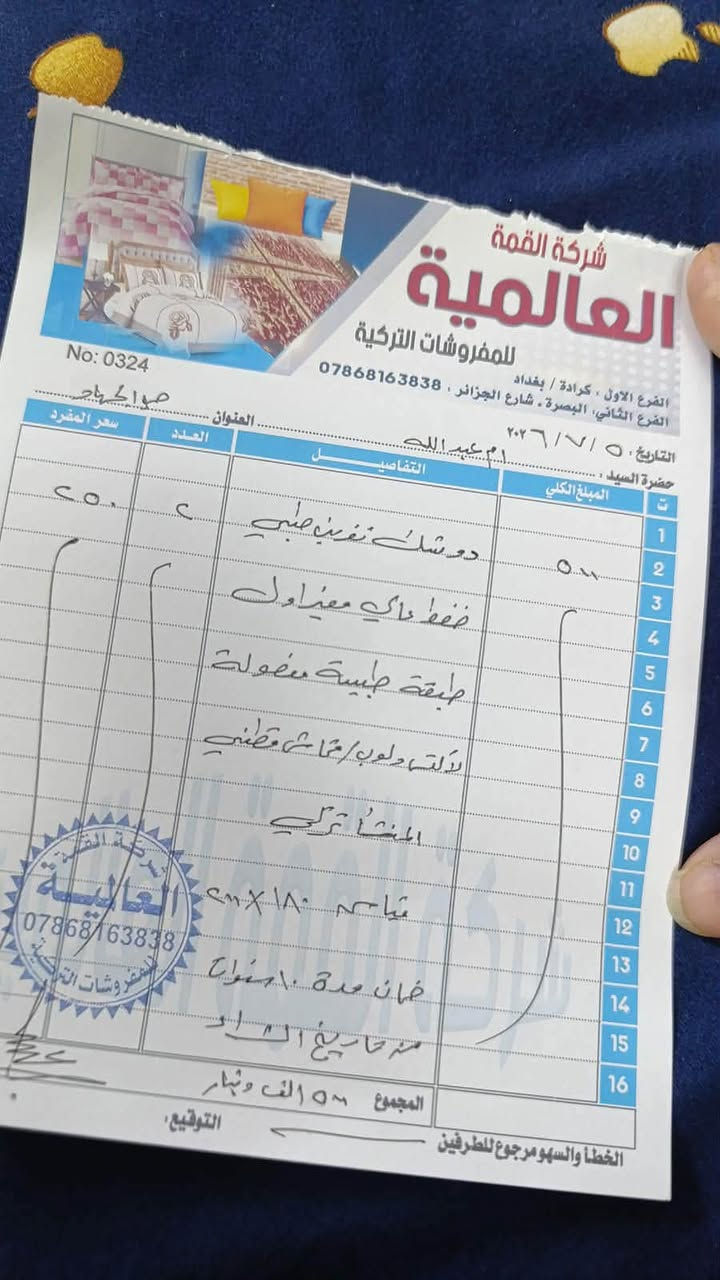 شركة القمة
العالمية
للمفروشات التركية
الفرع الاول ، كرادة / بغداد
الفرع الثاني، البصرة ، شارع الجزائر ، 07868163838
No: 0324
التاريخ: ٥ / ٧ / ٢٠٢٦
حضرة السيد: ام عبدالله العنوان
ت المبلغ الكلي التفاصيل العدد سعر المفرد
1
2 ٥٠٠ دوشك نفرين طبي ٢ ٢٥٠
3
4 ضغط عالي
5
6 طبقة طبية
7
8 / قماش قطني
9
10 المنشأ تركي
11
12 قياس ١٨٠ X ٢٠٠
13
14 ضمان مدة ١٠ سنوات
15 من تاريخ الشراء
16
المجموع ٥٠٠ الف دينار
الخطأ والسهو مرجوع للطرفين
التوقيع،
شركة القمة
العالمية
07868163838
للمفروشات التركية